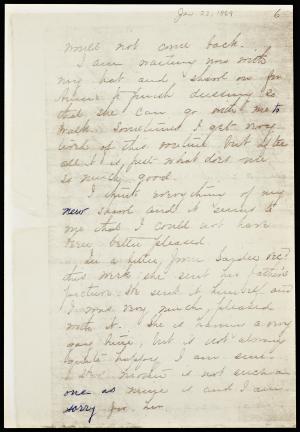 Jan. 23, 1909 6
would not come back.
I am waiting now with
my hat and shawl on for
to finish dressing so
that she can go with me to
walk. Sometimes I get very
tired of this routine but after
all it is just what does me
so much good.
I think very often of my
new shawl and it seems to
me that I could not have
been better pleased.
In a letter from
this week she sent her father's
picture. He sent it himself and
I was very much pleased
with it. She is having a very
gay time, but is not
quite happy I am sure.
is not such a
one as mine is and I am
sorry for her